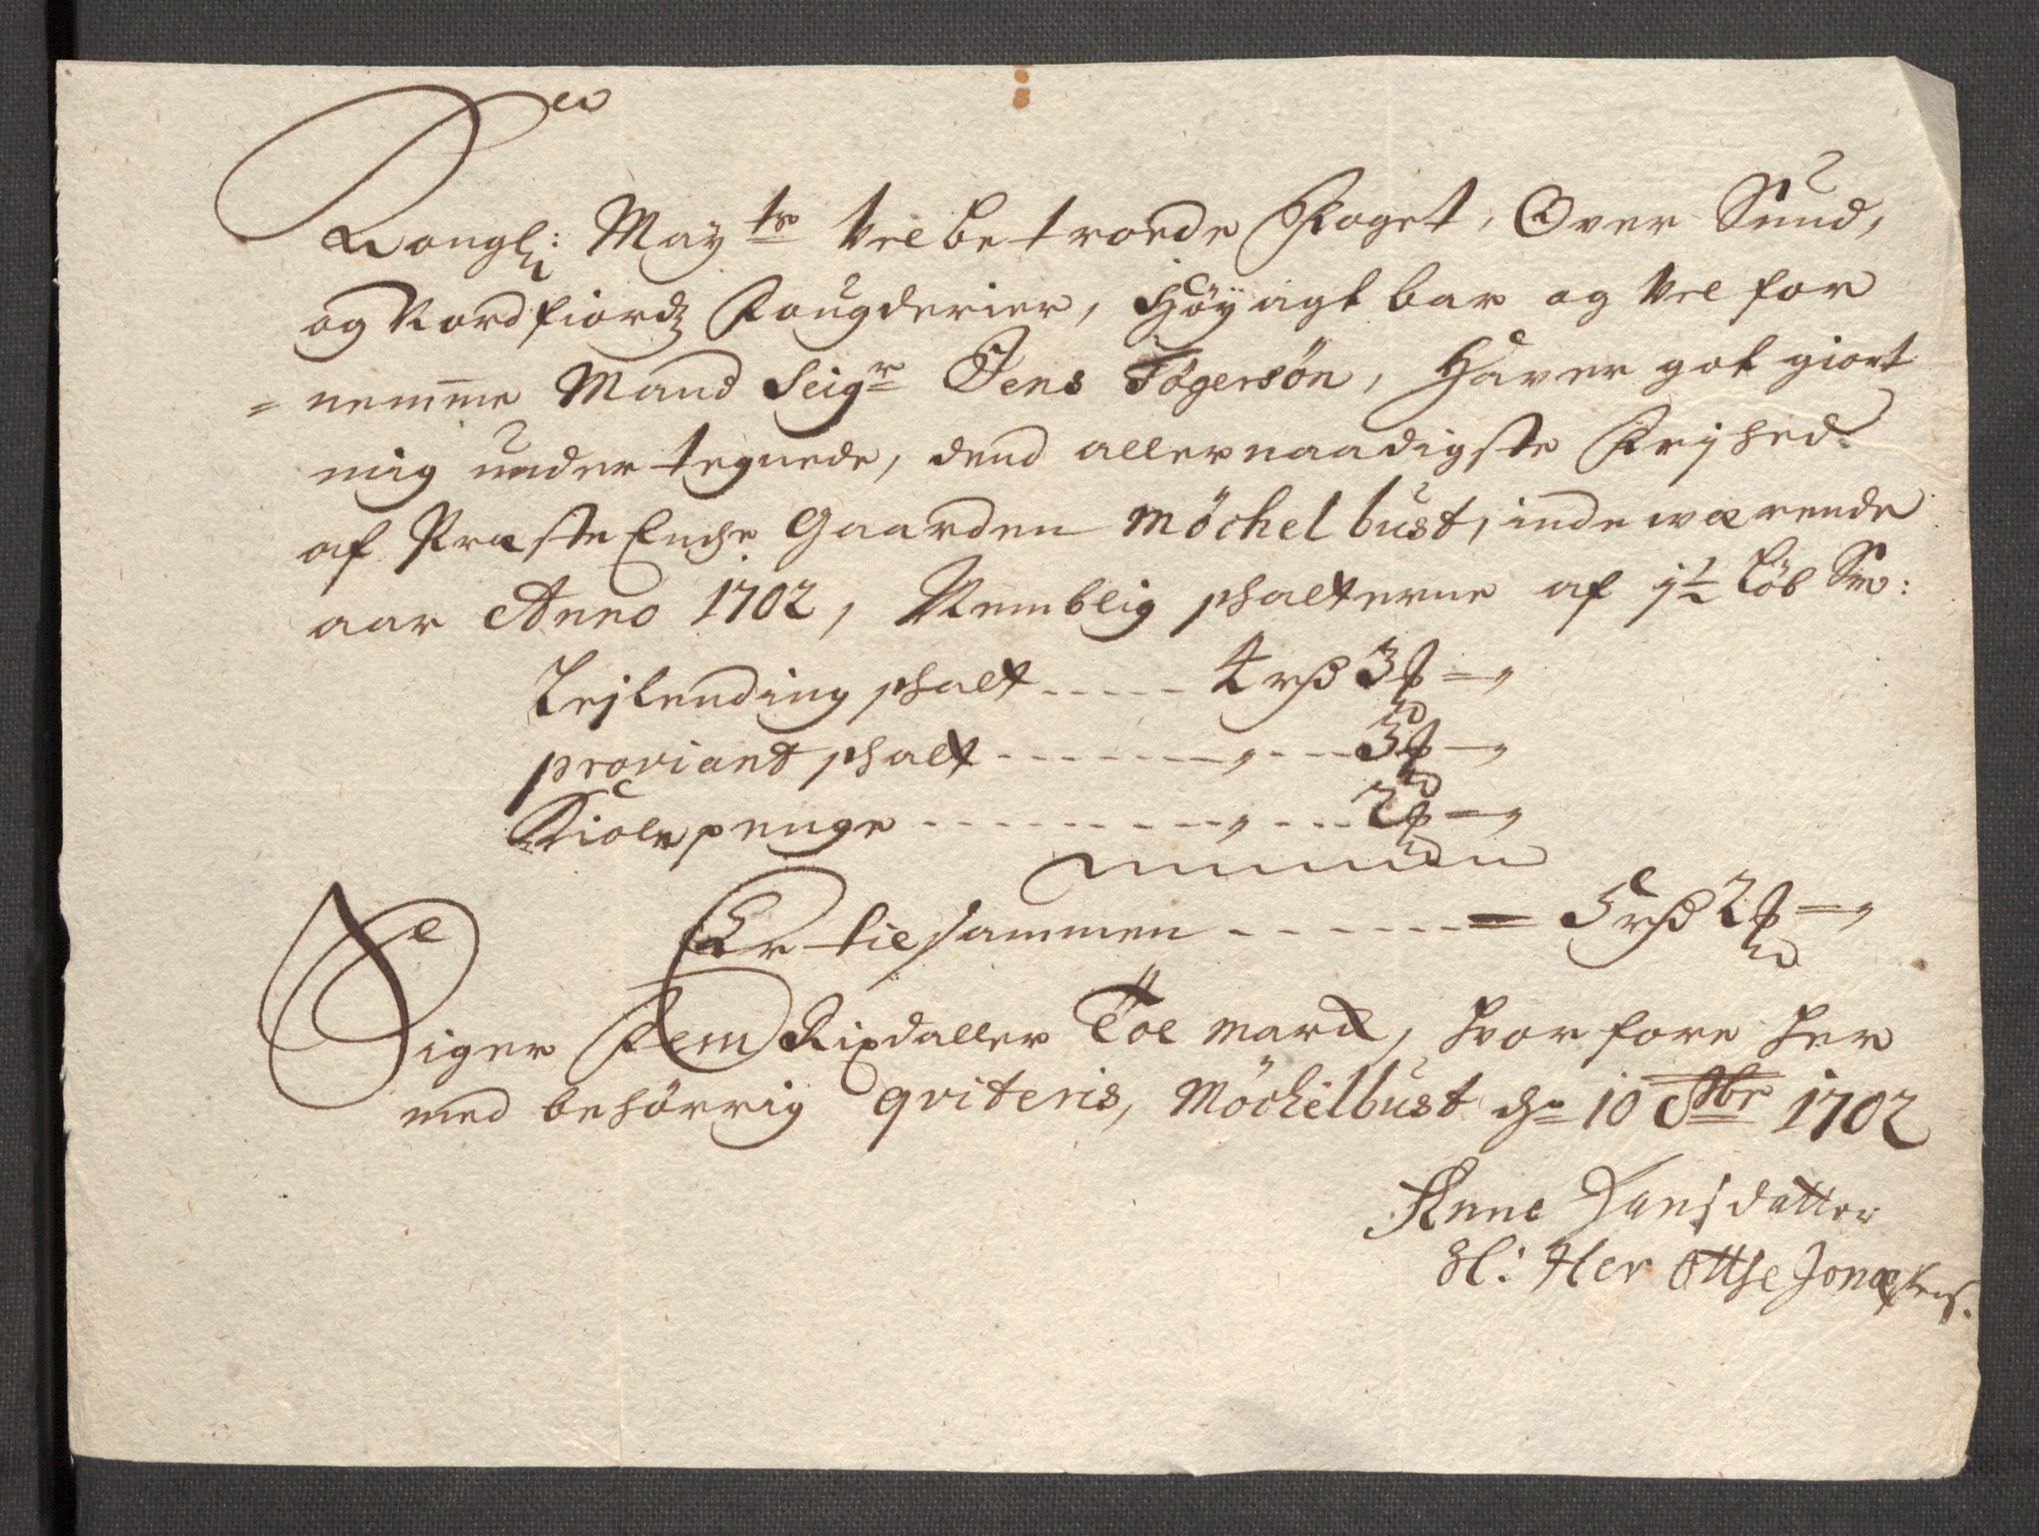 Kongl: Maytz Velbetroede Foget, Over Sund,
og Nordfiordz Fougderier, Høyagtbar og Vel for
= nemme Mand Seigr Jens Tøgersøn, Haver got giort
mig undertegnede, dend allernaadigste Frijhed
af Præste Enche Gaarden Möchelbust, indeværende
aar Anno 1702, Nemblig schatterne af 1½ Løb Sm:
Lejlending schatt ..... 4 rß 3 ₰ — „
proviant schatt ....... „ .... 3 ₰ — „
Kiole penge ......... „ ... 2 ₰ — „
Er tilsammen ....... = 5 rß 2 ₰ — „
Siger Fem Rixdaller Toe marck, hvorfore her
med behörrig qviteris, Möchelbust dn 10 Xbr 1702
Anne Hansdatter
Sl: Her Ottse Jonæsens.